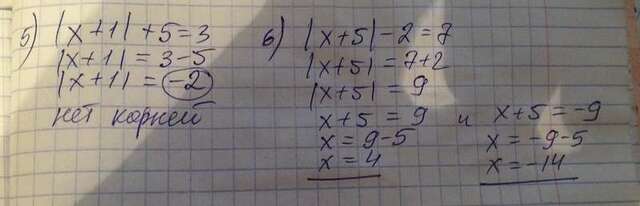 5) |x+1| + 5 = 3
|x+1| = 3-5
|x+1| = -2
нет корней
6) |x+5| - 2 = 7
|x+5| = 7+2
|x+5| = 9
x+5 = 9 и x+5 = -9
x = 9-5 x = -9-5
x = 4 x = -14